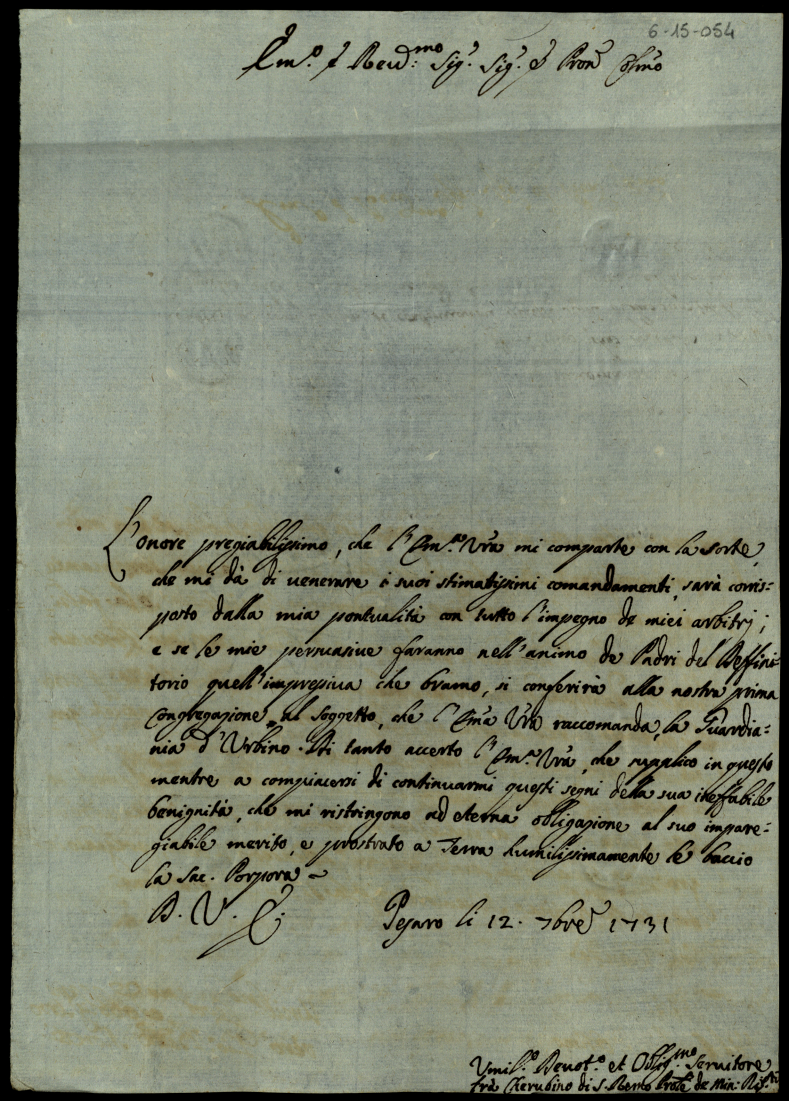 6-15-054
Em.º e Reud.mo Sig.r Sig.r e Pron Colmo
L'onore pregiabilissimo, che l'Em.ª Vra mi comparte con la sorte,
che mi dà di uenerare i suoi stimatissimi comandamenti, sarà corris=
posto dalla mia pontualità con tutto l'impegno de miei arbitrj;
e se le mie persuasiue faranno nell'animo de Padri del Deffini=
torio quell'impressiua che bramo, si conferirà alla nostra prima
Congregazione al soggetto, che l'Ema Vra raccomanda, la Guardia=
nia d'Urbino. Di tanto accerto l'Em.ª Vra, che supplico in questo
mentre a compiacersi di continuarmi questi segni della sua ineffabile
benignità, che mi ristringono ad eterna obligazione al suo impare=
giabile merito, e prostrato a Terra humilissimamente le baccio
la Sac. Porpora
D. V. E.
Pesaro li 12. 7bre 1731
Vmil.º Deuot.º et Oblig.mo Seruitore
frà Cherubino di S. Remo Prole de Min: Rif.ti